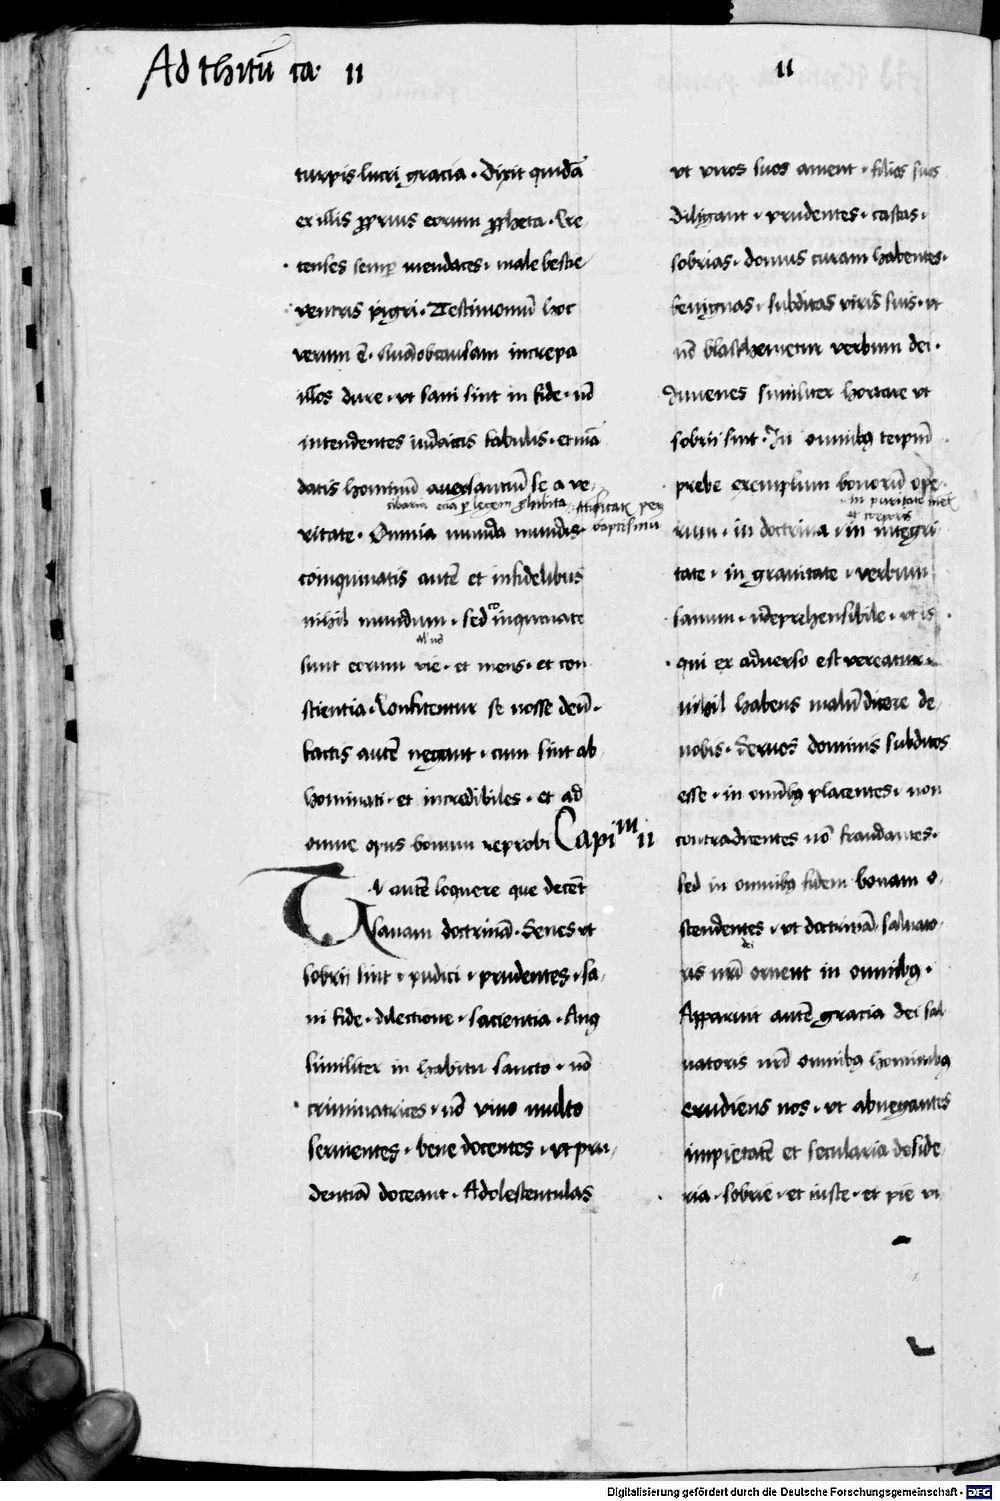 Ad thitū ca. II
II
turpis lucri gracia. Dixit quidā
ex illis ꝓprius eorum ꝓpheta. Cre-
tenses semꝑ mendaces. male bestie
ventris pigri. Testimoniū hoc
verum ē. Quā ob causam increpa
illos dure. vt sani sint in fide. nō
intendentes iudaicis fabulis. et mā
datis hominū aversantiū se a ve-
ritate. Omnia munda mundis
coinquinatis autē et infidelibus
nihil mundum. sed coinquinate
sunt eorum et mens. et con
scientia. Confitentur se nosse deū.
factis autē negant. cum sint ab
hominati. et incredibiles. et ad
omne opus bonum reprobi Capim II
TV autē loquere que decēt
sanam doctrinā. Senes vt
sobrii sint. pudici. prudentes. sa-
ni fide. dilectione. pacientia. Anꝯ
similiter in habitu sancto. nō
criminatrices. nō vino multo
seruientes. bene docentes. vt pru-
dentiā doceant. Adolescentulas
vt viros suos ament. filios suos
diligant. prudentes. castas.
sobrias. domus curam habentes.
benignas. subditas viris suis. vt
nō blasphemetur verbum dei.
Iuuenes similiter hortare vt
sobrii sint. In omnibꝯ teipm̄
prebe exemplum bonorū ope-
in puritate
et corporis
rum. in doctrina. in integri
tate. in grauitate. verbum
sanum. irreprehensibile. vt is
qui ex aduerso est vereatur.
nihil habens malū dicere de
nobis. Seruos dominis subditos
esse. in omībꝯ placentes. non
contradicentes nō fraudantes.
sed in omnibꝯ fidem bonam o-
stendentes. vt doctrinā saluato-
dei
ris nrī ornent in omnibꝯ.
Apparuit autē gracia dei sal
uatoris nrī omnibꝯ hominibꝯ
erudiens nos. vt abnegantes
impietatē et secularia deside-
ria. sobrie. et iuste. et pie vi
Digitalisierung gefördert durch die Deutsche Forschungsgemeinschaft · DFG